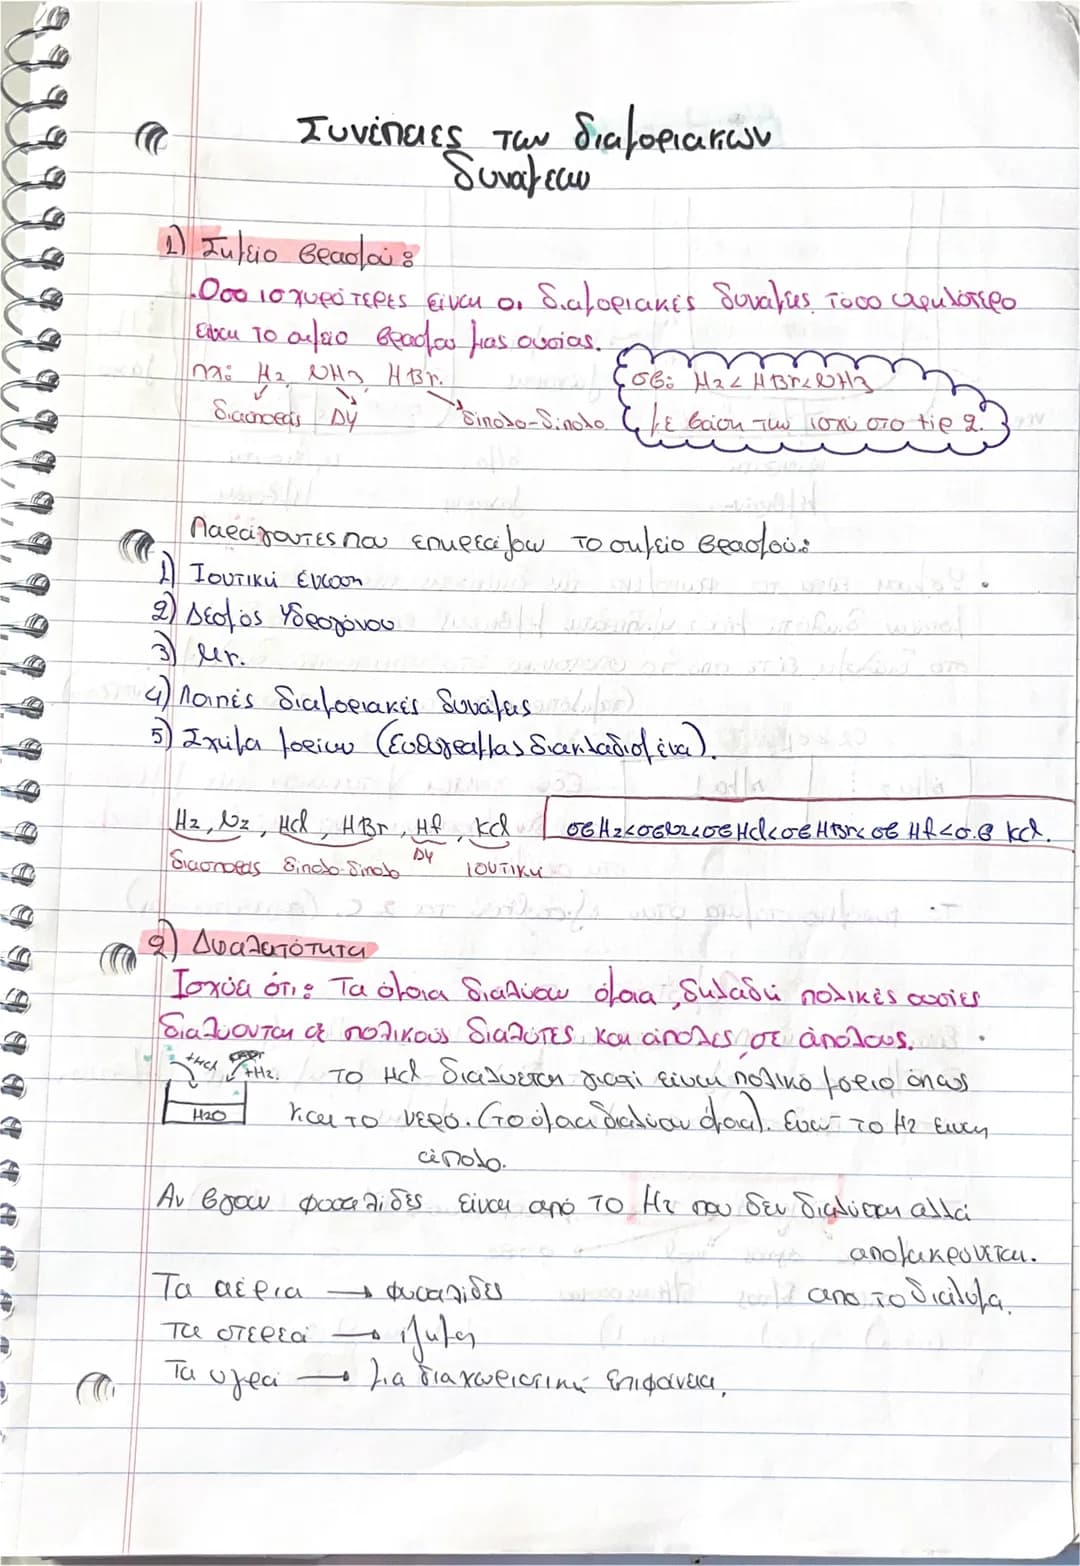 Συνέπειες των διαμοριακών
δυνάμεων
1) Σημείο βρασμού:
Όσο ισχυρότερες είναι οι διαμοριακές δυνάμεις τόσο υψηλότερο
είναι το σημείο βρασμού μιας ουσίας.
πχ: H2, NH3, HBr.
διασποράς ΔΥ δίπολο-δίπολο
σβ: H2 < HBr < NH3
με βάση την ισχύ στο tip 2.
Παράγοντες που επηρεάζουν το σημείο βρασμού:
1) Ιοντική ένωση
2) Δεσμός Υδρογόνου
3) Mr.
4) Λοιπές διαμοριακές δυνάμεις
5) Σχήμα μορίων (Ευθύγραμμα διακλαδισμένα).
H2, N2, HCl, HBr, Hf, KCl
σβ H2<σβ N2<σβ HCl<σβ HBr<σβ Hf<σ.β KCl.
διασποράς δίπολο-δίπολο ΔΥ ιοντική
2) Διαλυτότητα
Ισχύει ότι: Τα όμοια διαλύουν όμοια, δηλαδή πολικές ουσίες
διαλύονται σε πολικούς διαλύτες και άπολες σε άπολους.
+HCl +H2.
H2O
Το HCl διαλύεται γιατί είναι πολικό μόριο όπως
και το νερό. (το όμοια διαλύουν όμοια). Ενώ το H2 είναι
άπολο.
Αν βγουν φυσαλίδες είναι από το H2 που δεν διαλύεται αλλά
απομακρύνεται.
από το διάλυμα.
Τα αέρια → φυσαλίδες
Τα στερεά → ίζημα
Τα υγρά → μια διαχωριστική επιφάνεια.